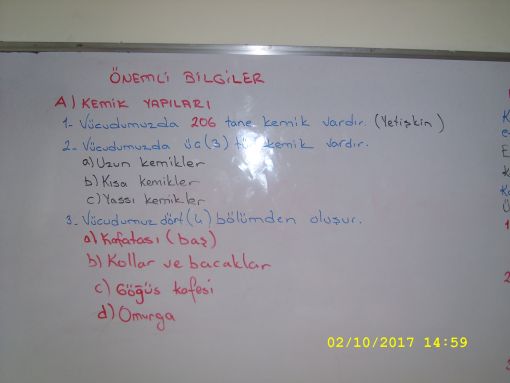 ÖNEMLİ BİLGİLER
A) KEMİK YAPILARI
1- Vücudumuzda 206 tane kemik vardır. (Yetişkin)
2- Vücudumuzda üç(3) kemik vardır.
a) Uzun kemikler
b) Kısa kemikler
c) Yassı kemikler
3. Vücudumuz dört(4) bölümden oluşur.
a) Kafatası (baş)
b) Kollar ve bacaklar
c) Göğüs kafesi
d) Omurga
02/10/2017 14:59